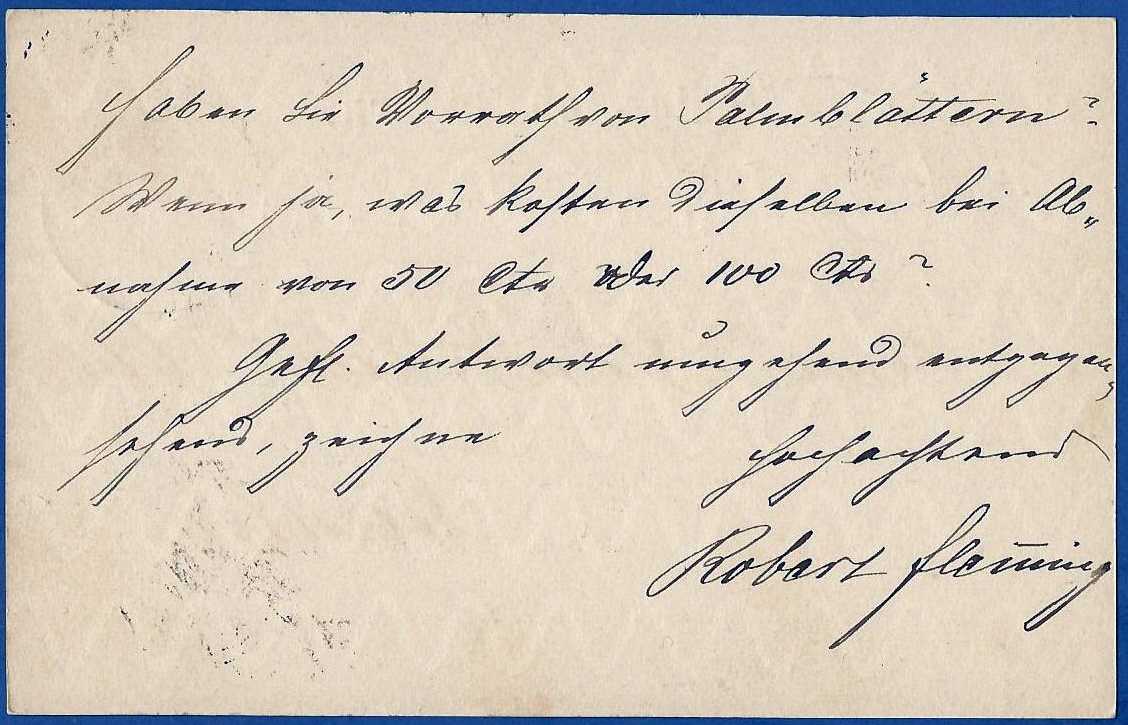 Haben Sie Vorrath von Palmblättern?
Wenn ja, was kosten dieselben bei Ab„
nahme von 50 Ctr oder 100 Ctr?
Gefl. Antwort umgehend entgegen„
sehend, zeichne
hochachtend
Robert Flem̅ing